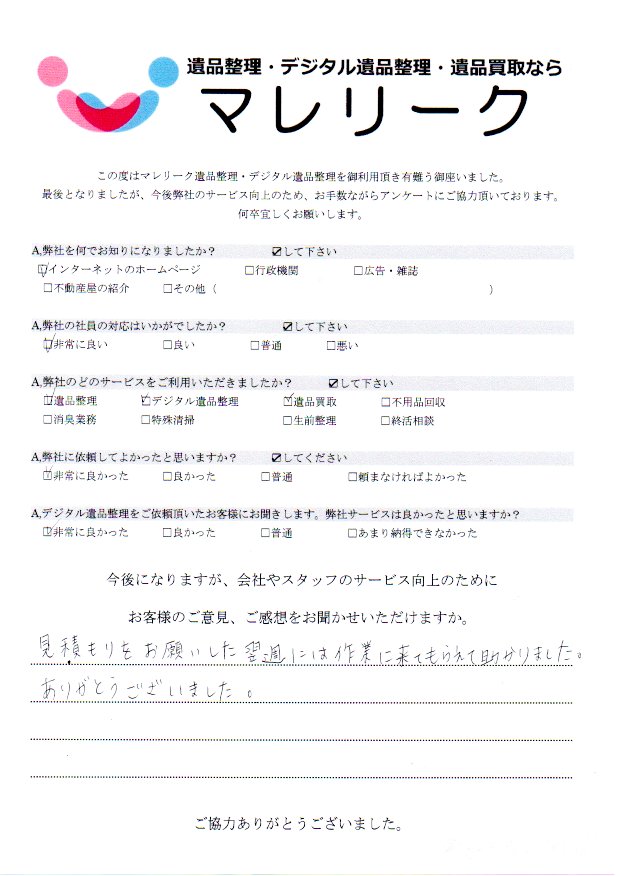 遺品整理・デジタル遺品整理・遺品買取なら
マレリーク
この度はマレリーク遺品整理・デジタル遺品整理を御利用頂き有難う御座いました。
最後となりましたが、今後弊社のサービス向上のため、お手数ながらアンケートにご協力頂いております。
何卒宜しくお願いします。
A,弊社を何でお知りになりましたか？ ☑して下さい
☑インターネットのホームページ □行政機関 □広告・雑誌
□不動産屋の紹介 □その他（ ）
A,弊社の社員の対応はいかがでしたか？ ☑して下さい
☑非常に良い □良い □普通 □悪い
A,弊社のどのサービスをご利用いただきましたか？ ☑して下さい
☑遺品整理 ☑デジタル遺品整理 ☑遺品買取 □不用品回収
□消臭業務 □特殊清掃 □生前整理 □終活相談
A,弊社に依頼してよかったと思いますか？ ☑してください
☑非常に良かった □良かった □普通 □頼まなければよかった
A,デジタル遺品整理をご依頼頂いたお客様にお聞きします。弊社サービスは良かったと思いますか？
☑非常に良かった □良かった □普通 □あまり納得できなかった
今後になりますが、会社やスタッフのサービス向上のために
お客様のご意見、ご感想をお聞かせいただけますか。
見積もりをお願いした翌週には作業に来てもらえて助かりました。
ありがとうございました。
ご協力ありがとうございました。